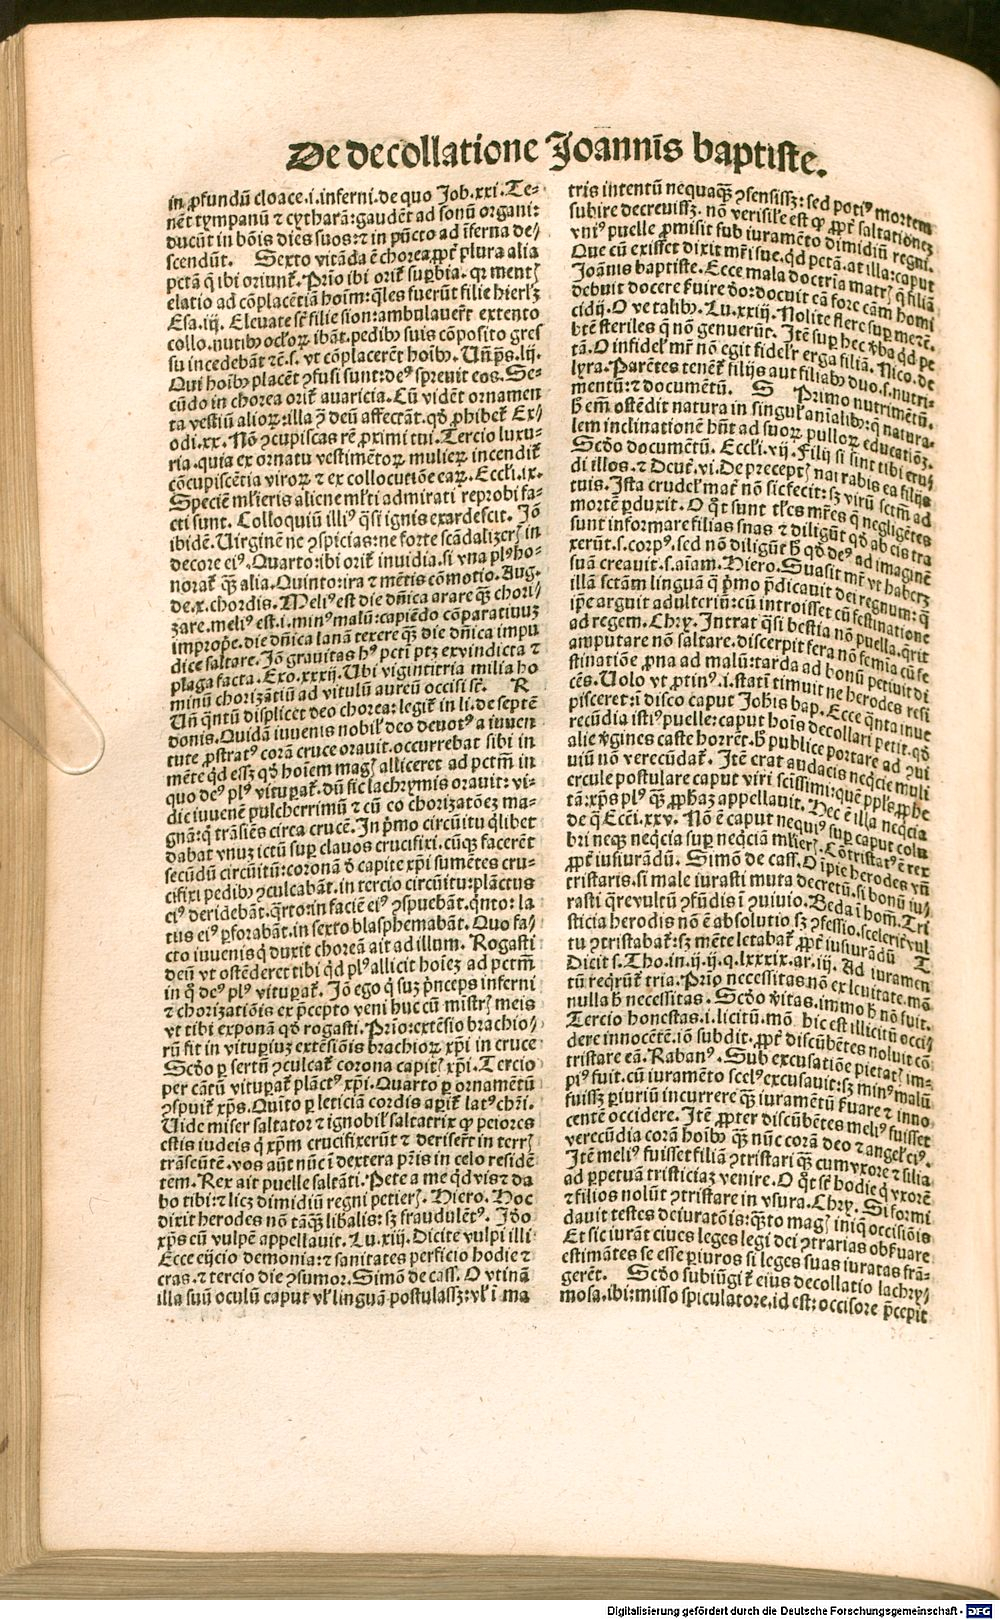 De decollatione Joannis baptiste.
in ꝓfundū cloace.i.inferni.de quo Job.xxi.Te-
nēt tympanū ⁊ cytharā:gaudēt ad sonū organi:
ducūt in bōis dies suos:⁊ in pūcto ad īferna de-
scendūt. Sexto vitāda ē chorea ꝓpt̄ plura alia
pctā q̄ ibi oriunt̄.Prīo ibi orit̄ suꝑbia.qꝛ ment⁊
elatio ad cōplacētiā hoīm:q̄les fuerūt filie hierlꝫ
Esa.iij. Eleuate sc̄t filie sion:ambulauert̄ extento
collo.nutibꝰ ocloꝝ.ibāt.pedibꝰ suis cōposito gres
su incedebāt ⁊c̄.s. vt cōplacerēt hoibꝰ. Un̄ ps̄.lij.
Qui hoibꝰ placēt ꝯfusi sunt:deꝰ spreuit eos.Se-
cūdo in chorea orit̄ auaricia.Cū vidēt ornamen
ta vestiū alioꝝ:illa ꝫ̄ deū affectāt.qd̄ ꝓhibet̄ Ex/
odi.xx. Nō ꝯcupiscas rē ꝓximi tui.Tercio luxu-
ria.quia ex ornatu vestimētoꝝ mulieꝝ incendit̄
cōcupiscētia viroꝝ ⁊ ex collocutiōe eaꝝ.Eccli.ix.
Speciē ml̄ieris aliene ml̄ti admirati reprobi fa-
cti sunt. Colloquiū illiꝰ q̄si ignis exardescit. Jō
ibidē.Uirginē ne ꝯspicias:ne forte scādalizer⁊ in
decore eiꝰ.Quarto:ibi orit̄ inuidia.si vna plꝰ ho-
norat̄ qꝫ̄ alia.Quinto:ira ⁊ mētis cōmotio.Aug.
de.x.chordis.Meliꝰ est die dn̄ica arare qꝫ̄ chori/
zare.meliꝰ est.i.minꝰ malū:capiēdo cōparatiuuꝫ
improp̄e.die dn̄ica lanā texere qꝫ̄ die dn̄ica impu
dice saltare.Jō grauitas hꝰ pcti ptꝫ ex vindicta ⁊
plaga facta.Exo.xxxij.Ubi vigintitria milia ho
minū chorizātiū ad vitulū aureū occisi sc̄t. R
Un̄ qn̄tū displicet deo chorea:legit̄ in li.de septē
donis.Quidā iuuenis nobil̄ deo deuotꝰ a iuuen
tute ꝓstratꝰ corā cruce orauit.occurrebat sibi in
mēte qd̄ essꝫ qd̄ hoīem mag⁊ alliceret ad pctm̄ in
quo deꝰ plꝰ vituꝑat̄.dū sic lachrymis orauit: vi-
dit iuuenē pulcherrimū ⁊ cū eo chorizatōeꝫ ma-
gnā:q̄ trāsiēs circa crucē.In pꝛmo circūitu qͥlibet
dabat vnuꝫ ictū suꝑ clauos crucifixi.cūqꝫ facerēt
secūdū circūitū:coronā ð capite xp̄i sumētes cru-
cifixi pedibꝰ ꝯculcabāt.in tercio circūitu:plāctus
eiꝰ deridebāt.q̄rto:in faciē eiꝰ ꝯspuebāt.qn̄to: la
tus eiꝰ ꝑforabāt.in sexto blasphemabāt. Quo fa/
cto iuuenis qͥ duxit choreā ait ad illum. Rogasti
deū vt ostēderet tibi qd̄ plꝰ allicit hoīeꝫ ad pctm̄
in qͦ deꝰ plꝰ vituꝑat̄. Jō ego qͥ suꝫ pͥnceps inferni
⁊ chorizatiōis ex p̄cepto veni huc cū mistr⁊ meis
vt tibi exponā qd̄ rogasti.Prīo:extēsio brachio/
rū fit in vituꝑiuꝫ extēsiōis brachioꝝ xp̄i in cruce
Scd̄o ꝑ sertū ꝯculcat̄ corona capit⁊ xp̄i.Tercio
per cātū vituꝑat̄ plāctꝰ xp̄i. Quarto ꝑ ornamētū
ꝯspuit̄ xps̄.Quīto ꝑ leticiā cordis aꝑit̄ latꝰ chr̄i.
Uide miser saltator ⁊ ignobil̄ saltatrix qꝫ peiores
estis iudeis qͥ xp̄m crucifixerūt ⁊ deriserūt in terr⁊
trāseūtē.vos aūt nūc ī dextera pr̄is in celo residē
tem.Rex ait puelle saltāti.Pete a me qd̄ vis ⁊ da
bo tibi:⁊ licꝫ dimidiū regni petier⁊.Hiero.Hoc
dixit herodes nō tāqꝫ̄ libalis:sꝫ fraudulētꝰ. Jdo
xps̄ eū vulpē appellauit.Lu.xiij.Dicite vulpi illi
Ecce eijcio demonia:⁊ sanitates perficio hodie ⁊
cras.⁊ tercio die ꝯsumor.Simō de cass.O vtinā
illa suū oculū caput vl̄ linguā postulassꝫ:vl̄ ī ma
tris intentū nequaqꝫ̄ ꝯsensissꝫ:sed potiꝰ mortem
subire decreuissꝫ.nō verisil̄e est qꝫ ꝓpt̄ saltationeꝫ
vniꝰ puelle ꝓmisit sub iuramēto dimidiū regni.
Que cū exisset dixit mr̄i sue.qd̄ petā.at illa:caput
Joānis baptiste.Ecce mala doctria matr⁊ q̄ filiā
debuit docere fuire ðo:docuit eā fore cām homi
cidij.O ve talibꝰ.Lu.xxiij.Nolite flere suꝑ me ⁊c̄.
btē steriles q̄ nō genuerūt. Jtē suꝑ hec ꝟba qd̄ pe
tā.O infidel̄ mr̄ nō egit fidelr̄ erga filiā.Nico.de
lyra.Parētes tenēt̄ filijs aut filiabꝰ duo.s.nutri-
mentū:⁊ documētū. S Primo nutrimētū.
h̄ em̄ ostēdit natura in singul̄ aīalibꝰ:q̄ natura-
lem inclinationē hn̄t ad suoꝝ pulloꝝ educatiōꝫ.
Scd̄o documētū. Eccli.vij.Filij si sint tibi eru/
di illos.⁊ Deut̄.vi.De precept⁊ narrabis ea filijs
tuis.Ista crudel̄ mat̄ nō sic fecit:sꝫ virū sctm̄ ad
mortē ꝑduxit.O qͦt sunt tl̄es mr̄es q̄ negligētes
sunt informare filias suas ⁊ diligūt qd̄ ab eis tra
xerūt.s.corpꝰ.sed nō diligūt h̄ qd̄ deꝰ ad imaginē
suā creauit.s.aīam.Hiero.Suasit mr̄ vt haberꝫ
illā sctam linguā q̄ pͥmo p̄dicauit dei regnum: q̄
ip̄e arguit adulteriū:cū introisset cū festinatione
ad regem.Chrẏ.Intrat q̄si bestia nō puella.q̄rit
amputare nō saltare.discerpit fera nō femīa cū fe
stinatiōe ꝓna ad malū:tarda ad bonū petiuit di
cēs.Uolo vt ꝓtinꝰ.i.statī timuit ne herodes resi
pisceret:ī disco caput Johis bap.Ecce qn̄ta inue
recūdia istiꝰ puelle:caput hoīs decollari petit.qd̄
alie ꝟgines caste horrēt.h̄ publice portare ad ꝯui
uiū nō verecūdat̄. Jtē erat audacis neqͥcie muli
ercule postulare caput viri sctissimi:quē pplꝰ ꝓphe
tā:xps̄ plꝰ qꝫ̄ ꝓphaꝫ appellauit. Hec ē illa neqͥcia
de q̄ Ecci.xxv. Nō ē caput nequiꝰ suꝑ caput colu
bri neqꝫ neqͥcia suꝑ neqͥciā ml̄ier⁊.Cōtristatꝰ ē rex
ꝓpt̄ iusiurādū. Simō de cass.O īpie herodes vn̄
tristaris.si male iurasti muta decretū.si bonū iu/
rasti q̄re vultū ꝯfūdis ī ꝯuiuio.Beda ī hom̄.Tri
sticia herodis nō ē absolutio sꝫ ꝯfessio.sceleriꝰ vul
tu ꝯtristabat̄:sꝫ mēte letabat̄ ꝓpt̄ iusiurādū T
Dicit s.Tho.in.ij.ij.q.lxxxix.ar.iij. Ad iuramen
tū reqͥrūt̄ tria.Prīo necessitas.nō ex leuitate.mō
nulla h̄ necessitas.Scd̄o ꝟitas.immo h̄ nō fuit.
Tercio honestas.i.licitū.mō hic est illicitū occi/
dere innocētē.iō subdit.ꝓpt̄ discūbētes noluit cō
tristare eā.Rabanꝰ.Sub excusatiōe pietat⁊ im-
piꝰ fuit.cū iuramēto scelꝰ excusauit:sꝫ minꝰ malū
fuissꝫ ꝑiuriū incurrere qꝫ̄ iuramētū ẜuare ⁊ inno
centē occidere. Jtē ꝓpter discūbētes meliꝰ fuisset
verecūdia corā hoibꝰ qꝫ̄ nūc corā deo ⁊ angel̄ eiꝰ.
Jtē meliꝰ fuisset filiā ꝯtristari qꝫ̄ cum vxore ⁊ filia
ad ꝑpetuā tristiciaꝫ venire.O qͦt sc̄t hodie qͥ vxorē
⁊ filios nolūt ꝯtristare in vsura.Chrẏ. Si formi
dauit testes deiuratōis:qꝫ̄to mag⁊ iniq̄ occisiōis
Et sic iurāt ciues leges legi dei ꝯtrarias obẜuare
estimātes se esse ꝑiuros si leges suas iuratas frā-
gerēt. Scd̄o subiūgit̄ eius decollatio lachry/
mosa.ibi:misso spiculatore,id est:occisore p̄cepit
Digitalisierung gefördert durch die Deutsche Forschungsgemeinschaft - DFG